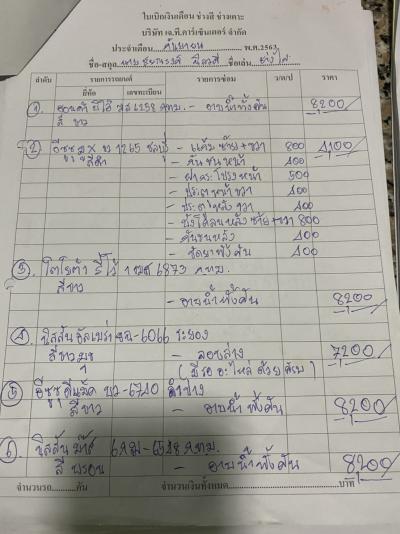 ใบเบิกเงินเดือน ช่างสี ช่างเคาะ
บริษัท เจ.ที.คาร์เซ็นเตอร์ จำกัด
ประจำเดือน กันยายน พ.ศ.2563
ชื่อ-สกุล ชื่อเล่น
ลำดับ รายการรถยนต์ รายการซ่อม ว/ด/ป ราคา
ยี่ห้อ เลขทะเบียน
1. 1258 กทม. - อาบน้ำทั้งคัน 8200
สีขาว
2. อีซูซุ 1265 ชลบุรี - แก้มซ้าย+ขวา 800 4100
สีดำ - กันชนหน้า 400
- ฝากระโปรงหน้า 500
- ประตูหน้าขวา 400
- ประตูหลังขวา 400
- บังโคลนหลังซ้าย+ขวา 800
- กันชนหลัง 400
- ขัดยาทั้งคัน 400
3. โตโยต้า วีโก้ 6873 กทม.
สีขาว
- อาบน้ำทั้งคัน 8200
4. นิสสัน อัลเมร่า -6066 ระยอง
สีขาวมุก - ลอบล่าง 7200
(มีรออะไหล่ด้วยครับ)
5. อีซูซุ ดีแม็ค บว-6740 ลำปาง
สีขาว - อาบน้ำทั้งคัน 8200
6. นิสสัน มาร์ช -6528 กทม.
สี - อาบน้ำทั้งคัน 8200
จำนวนรถ คัน จำนวนเงินทั้งหมด บาท